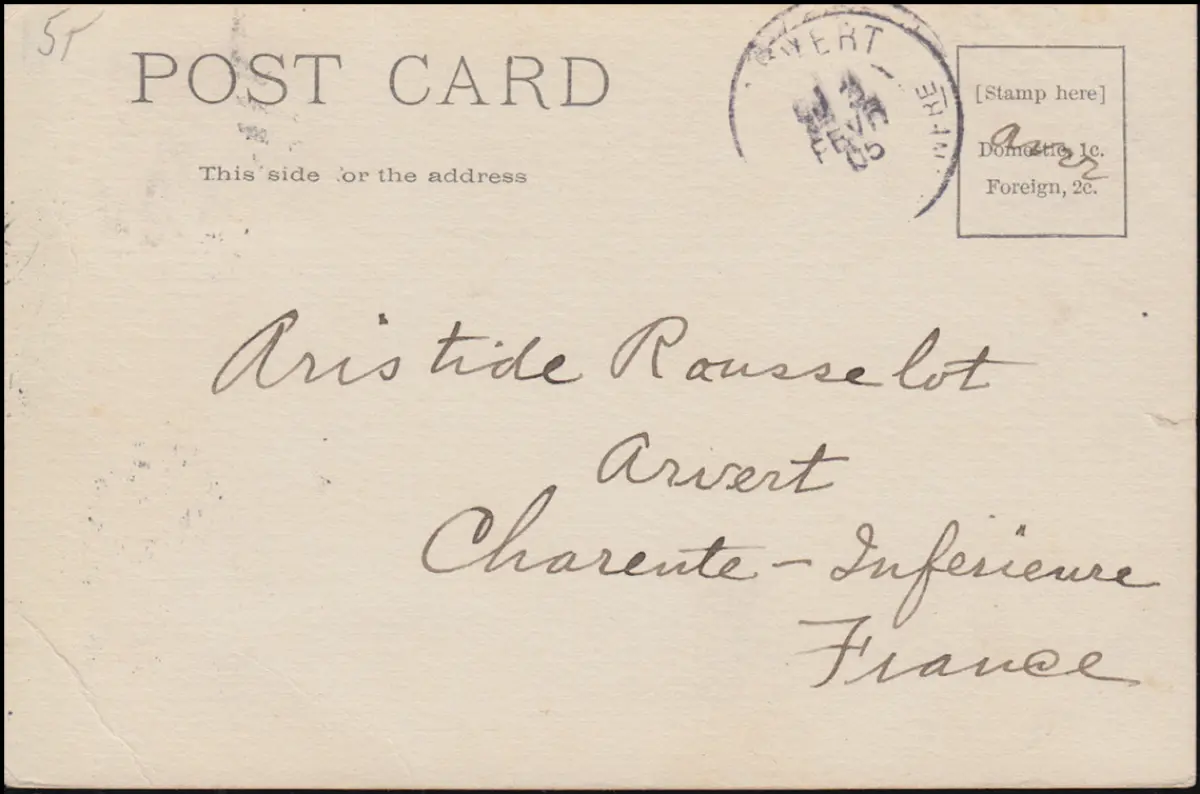 51
POST CARD
This side for the address
ARVERT
INFRE
FEVR
05
[Stamp here]
Domestic, 1c.
Foreign, 2c.
Aristide Rousselot
Arvert
Charente - Inférieure
France